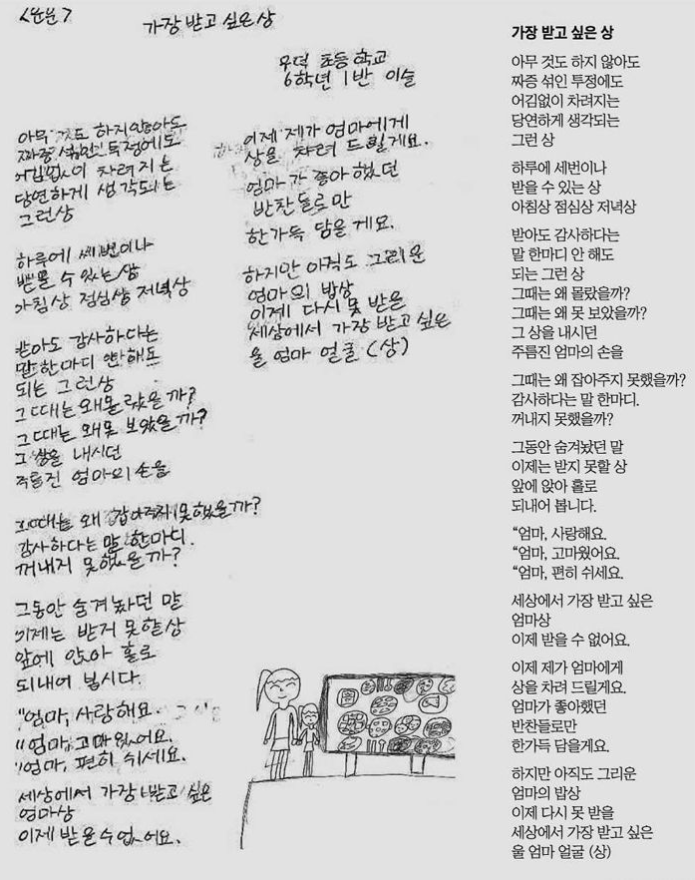 <운문>
가장 받고 싶은 상
우덕 초등학교
6학년 1반 이슬
아무 것도 하지않아도
짜증 섞인 투정에도
어김없이 차려지는
당연하게 생각되는
그런상
하루에 세번이나
받을 수 있는 상
아침상 점심상 저녁상
받아도 감사하다는
말한마디 안해도
되는 그런상
그때는 왜몰랐을까?
그때는 왜못 보았을까?
그 상을 내시던
주름진 엄마의 손을
그때는 왜 잡아주지 못했을까?
감사하다는 말 한마디.
꺼내지 못했을까?
그동안 숨겨놨던 말
이제는 받지 못할상
앞에 앉아 홀로
되내어 봅시다.
"엄마, 사랑해요.
"엄마, 고마웠어요.
"엄마, 편히 쉬세요.
세상에서 가장 받고 싶은
엄마상
이제 받을수없어요.
이제 제가 엄마에게
상을 차려 드릴게요.
엄마가 좋아했던
반찬들로만
한가득 담을게요.
하지만 아직도 그리운
엄마의 밥상
이제 다시 못 받을
세상에서 가장 받고 싶은
울 엄마 얼굴 (상)
가장 받고 싶은 상
아무 것도 하지 않아도
짜증 섞인 투정에도
어김없이 차려지는
당연하게 생각되는
그런 상
하루에 세번이나
받을 수 있는 상
아침상 점심상 저녁상
받아도 감사하다는
말 한마디 안 해도
되는 그런 상
그때는 왜 몰랐을까?
그때는 왜 못 보았을까?
그 상을 내시던
주름진 엄마의 손을
그때는 왜 잡아주지 못했을까?
감사하다는 말 한마디.
꺼내지 못했을까?
그동안 숨겨놨던 말
이제는 받지 못할 상
앞에 앉아 홀로
되내어 봅니다.
“엄마, 사랑해요.
“엄마, 고마웠어요.
“엄마, 편히 쉬세요.
세상에서 가장 받고 싶은
엄마상
이제 받을 수 없어요.
이제 제가 엄마에게
상을 차려 드릴게요.
엄마가 좋아했던
반찬들로만
한가득 담을게요.
하지만 아직도 그리운
엄마의 밥상
이제 다시 못 받을
세상에서 가장 받고 싶은
울 엄마 얼굴 (상)